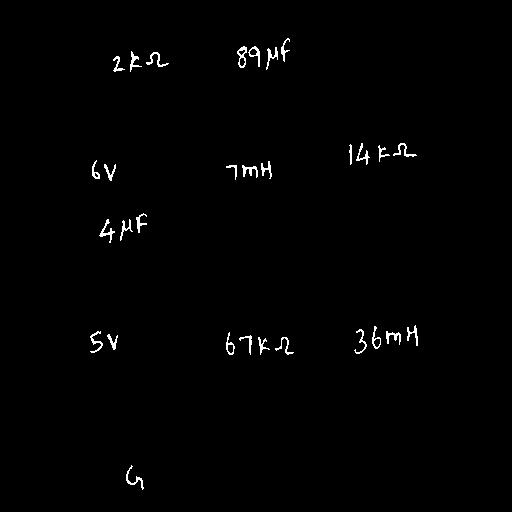 2kΩ 89μF
6V 7mH 14kΩ
4μF
5V 67kΩ 36mH
G